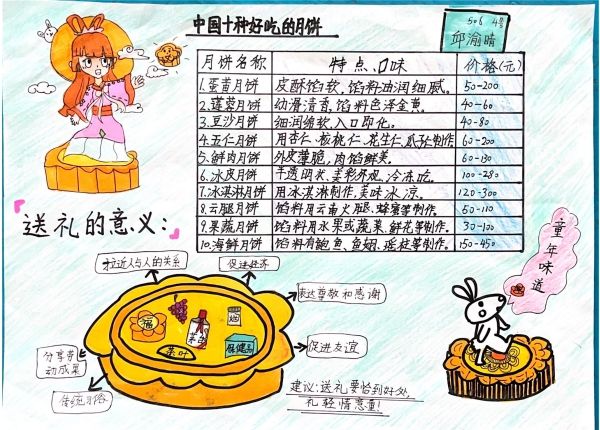 中国十种好吃的月饼
506 4号
邱渝晴
月饼名称 特点、口味 价格(元)
1.蛋黄月饼 皮酥馅软、馅料油润细腻。 50-200
2.莲蓉月饼 幼滑清香、馅料色泽金黄。 40-60
3.豆沙月饼 细润绵软、入口即化。 40-80
4.五仁月饼 用杏仁、核桃仁、花生仁、瓜子制作 60-200
5.鲜肉月饼 外皮薄脆,肉馅鲜美。 60-130
6.冰皮月饼 半透明状、美彩外观、冷冻吃。 100-280
7.冰淇淋月饼 用冰淇淋制作,美味冰凉。 120-300
8.云腿月饼 馅料用云南火腿、蜂蜜等制作。 50-110
9.果蔬月饼 馅料用水果或蔬菜、鲜花等制作。 30-100
10.海鲜月饼 馅料有鲍鱼、鱼翅、瑶柱等制作。 150-450
送礼的意义:
童年味道
拉近人与人的关系
促进经济
表达尊敬和感谢
促进友谊
分享劳动成果
传统习俗
福
茶叶
保健品
烟
建议:送礼要恰到好处,
礼轻情意重!